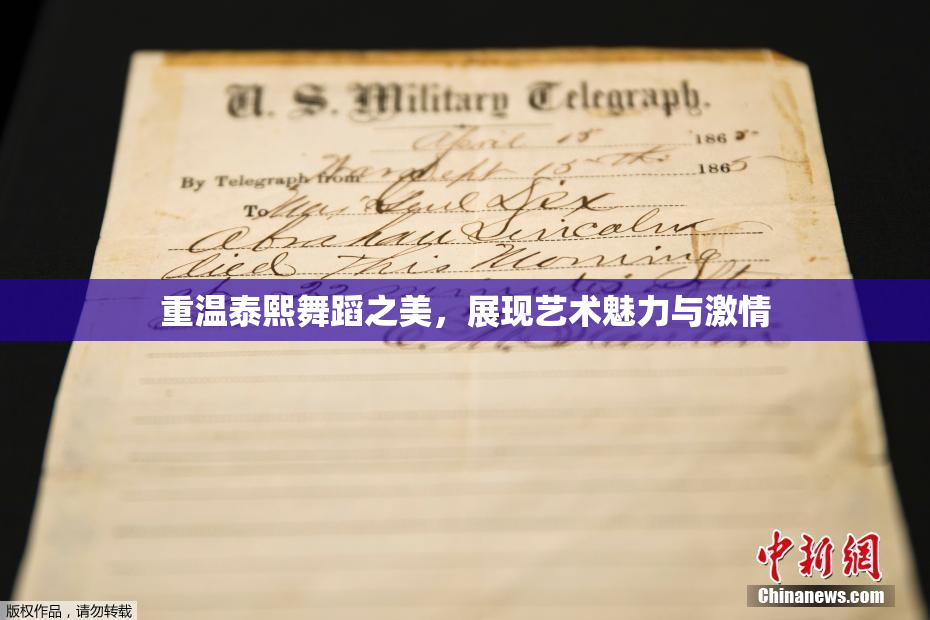 U. S. Military Telegraph.
April 15 1865
By Telegraph from War Dept 15th 1865
To Maj Genl Dix
Abraham Lincoln
died This Morning
at 22 minutes after
重温泰熙舞蹈之美，展现艺术魅力与激情
E. M. Stanton
中新网
Chinanews.com
版权作品，请勿转载